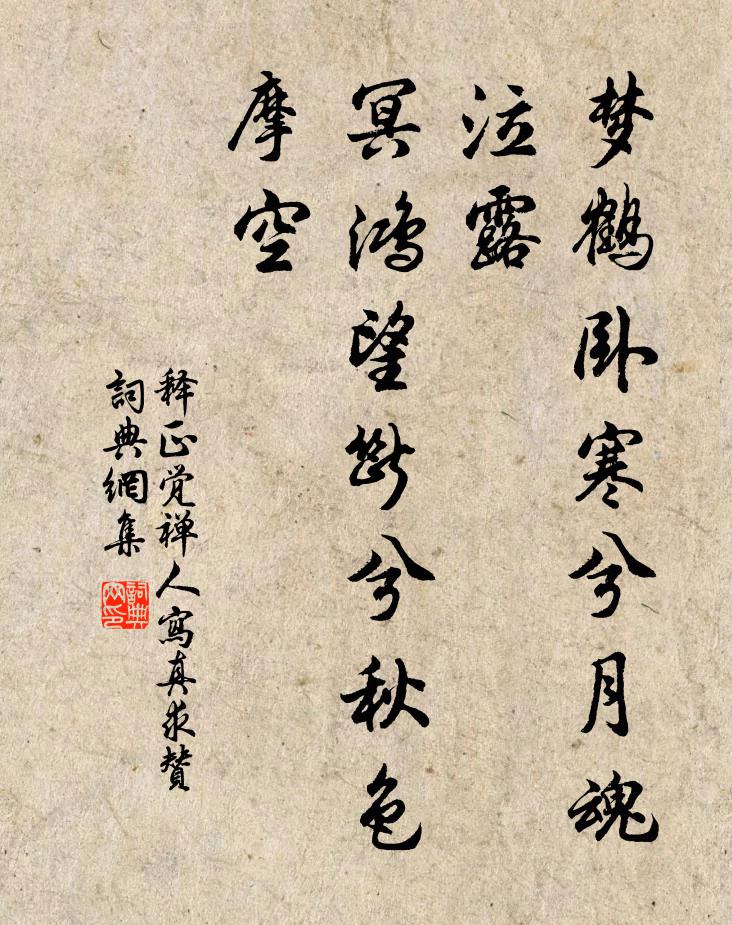 梦鹤卧寒兮月魂
泣露
冥鸿望断兮秋色
摩空
释正觉禅人寫真求賛
詞典網集
詞典
网印